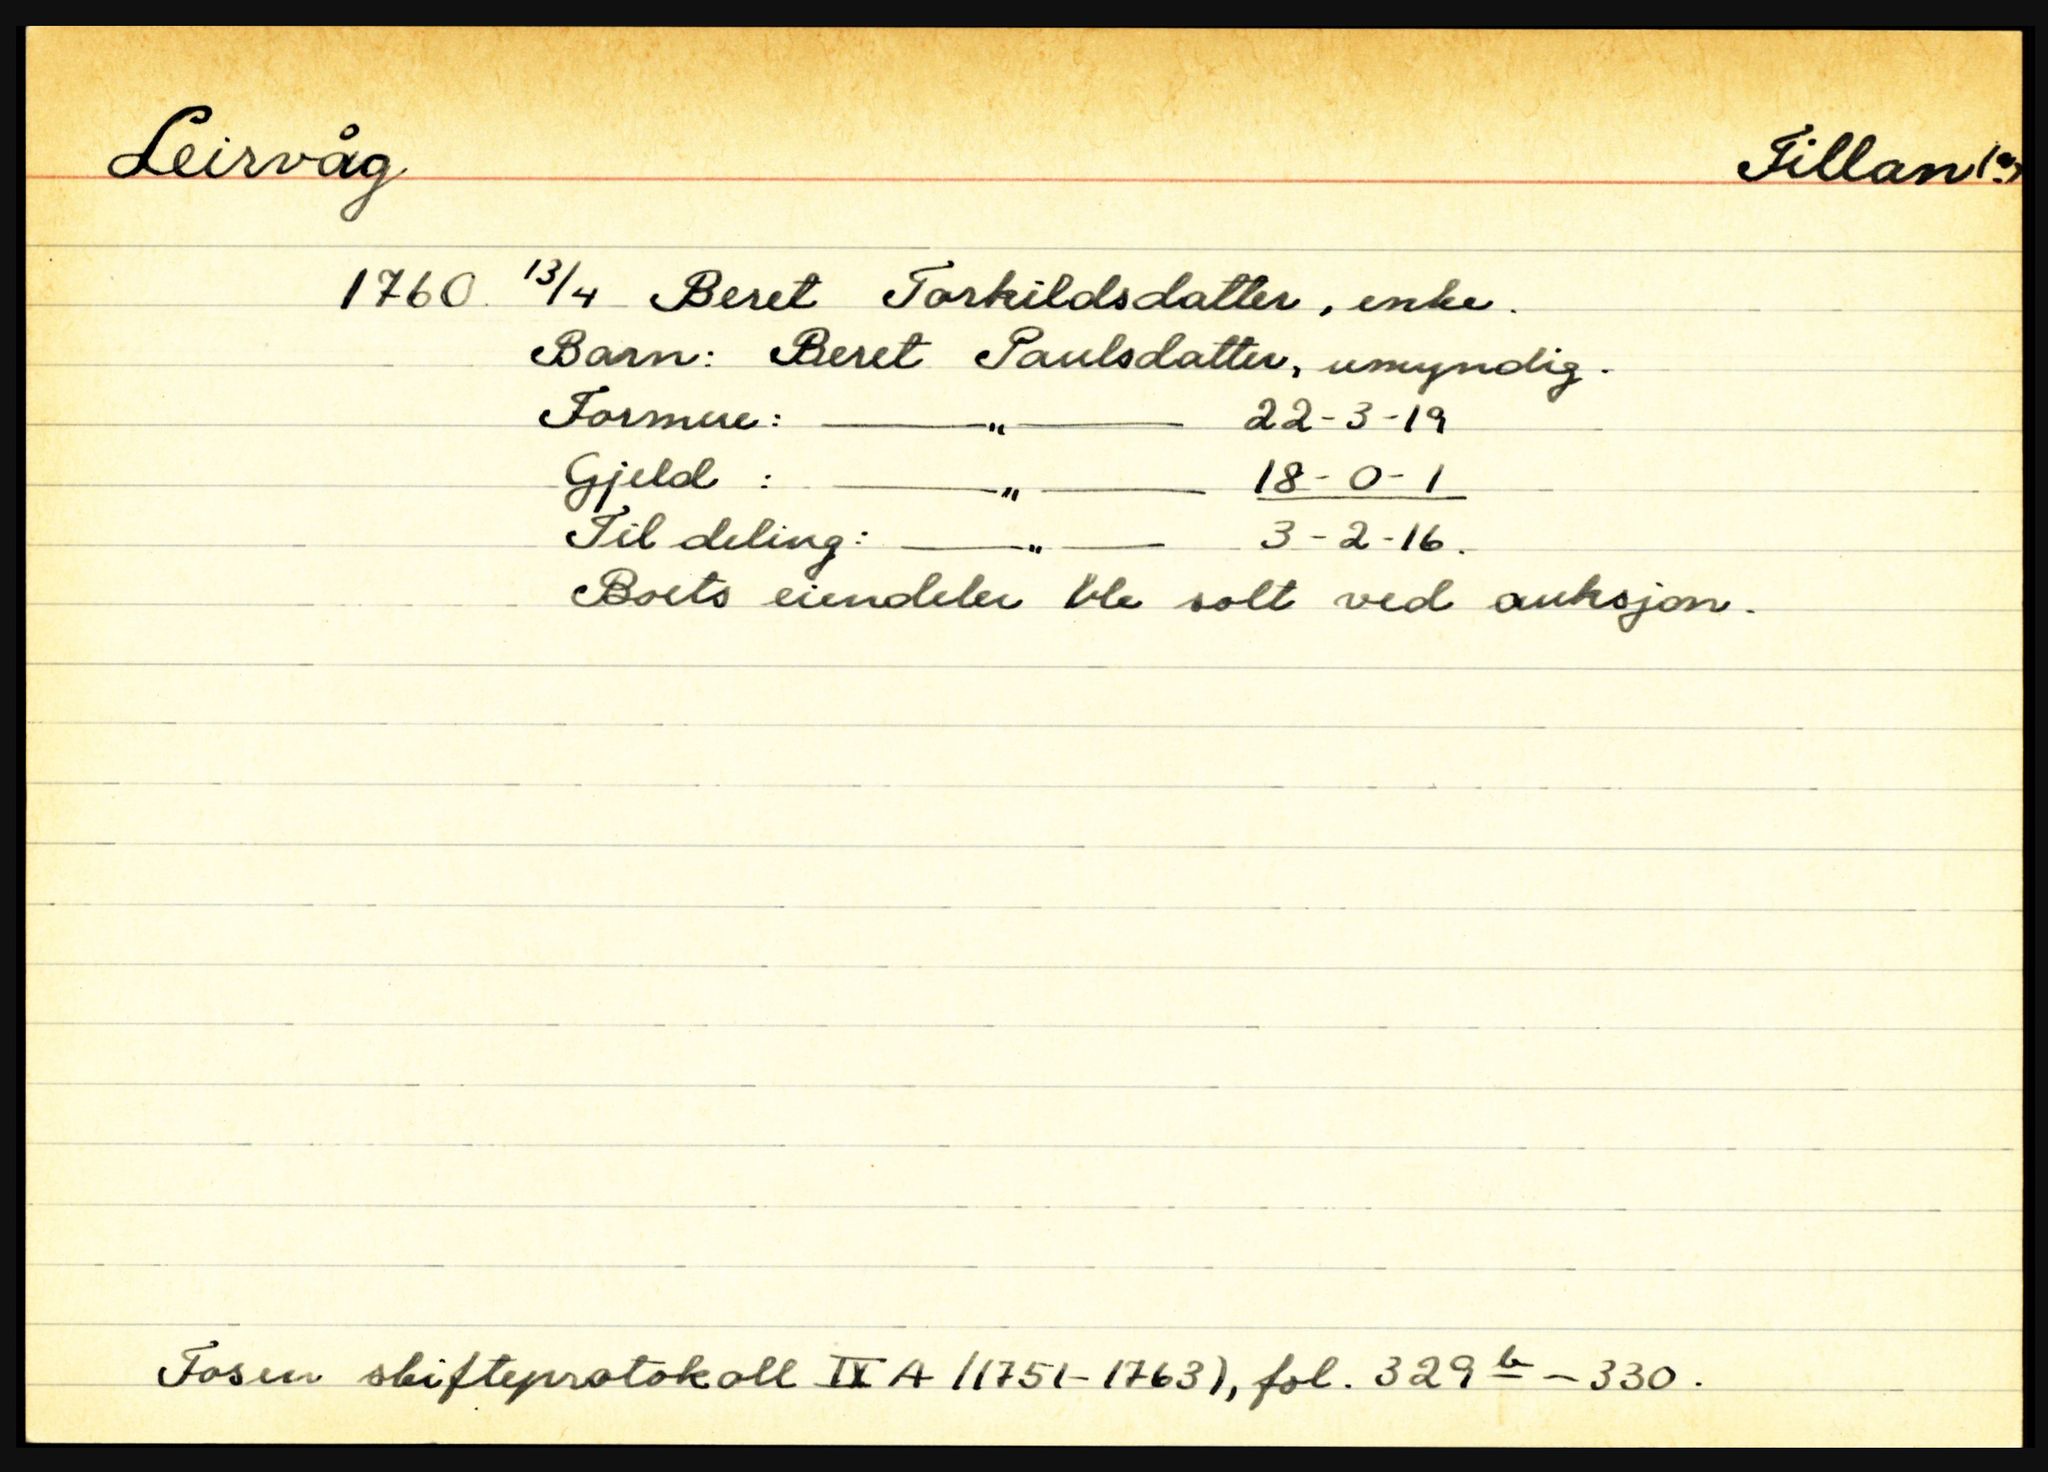 Leirvåg
Fillan
1760 13/4 Beret Torkildsdatter, enke.
Barn: Beret Paulsdatter, umyndig.
Formue: — " — 22-3-19
Gjeld : — " — 18-0-1
Til deling: — " — 3-2-16.
Boets eiendeler ble solt ved auksjon.
Fosen skifteprotokoll IX A (1751-1763), fol. 329 b - 330.